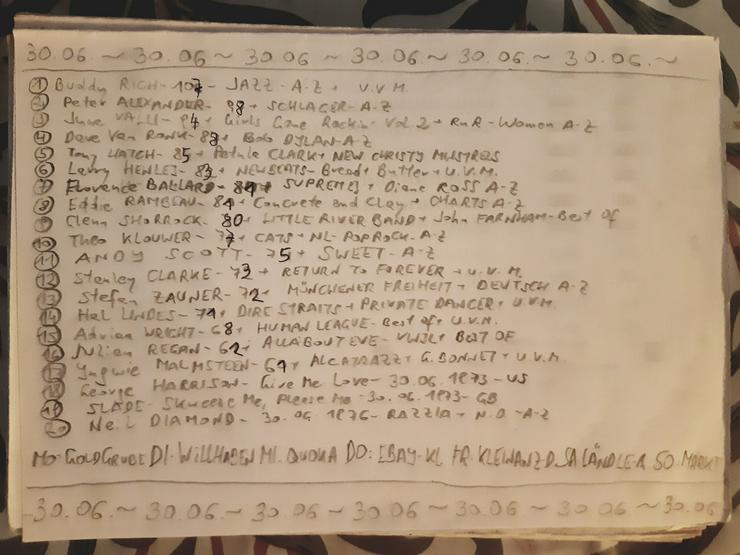 30.06. ~ 30.06 ~ 30.06 ~ 30.06 ~ 30.06 ~ 30.06. ~
1 Buddy RICH - 107 - JAZZ - A-Z + U.V.M.
2 Peter ALEXANDER - 98 + SCHLAGER - A-Z
3 June VALLI - 94 + Girls Gone Rockin - Vol 2 + RnR - Women A-Z
4 Dave Van RONK - 88 + Bob DYLAN - A-Z
5 Tony HATCH - 85 + Petula CLARK + NEW CHRISTY MINSTRELS
6 Larry HENLEY - 83 + NEWBEATS - Bread + Butter + U.V.M.
7 Florence BALLARD - 81 + SUPREMES + Diane ROSS A-Z
8 Eddie RAMBEAU - 81 + Concrete and Clay + CHARTS A-Z
9 Glenn SHORROCK - 80 + LITTLE RIVER BAND + John FARNHAM - Best of
10 Theo KLOUWER - 77 + CATS + NL - POPROCK - A-Z
11 ANDY SCOTT - 75 + SWEET - A-Z
12 Stanley CLARKE - 73 + RETURN TO FOREVER + U.V.M.
13 Stefan ZAUNER - 72 + MÜNCHENER FREIHEIT + DEUTSCH A-Z
Hal LINDES - 71 + DIRE STRAITS + PRIVATE DANCER + U.V.M.
15 Adrian WRIGHT - 68 + HUMAN LEAGUE - Best of + U.V.M.
16 Julian REGAN - 62 + ALL ABOUT EVE - BEST OF
17 Yngwie MALMSTEEN - 61 + ALCATRAZZ + G. BONNET + U.V.M.
18 George HARRISON - Give Me Love - 30.06.1973 - US
19 SLADE - Skweeze Me, Pleeze Me - 30.06.1973 - GB
20 Neil DIAMOND - 30.06 1976 - RAZZIA + N.D. - A-Z
MO: GOLDGRUBE DI: WILLHABEN MI: QUOKA DO: EBAY-KL FR. KLEINANZ D. SA LÄNDLER SO. MARKT
30.06. ~ 30.06. ~ 30.06 ~ 30.06 ~ 30.06. ~ 30.06